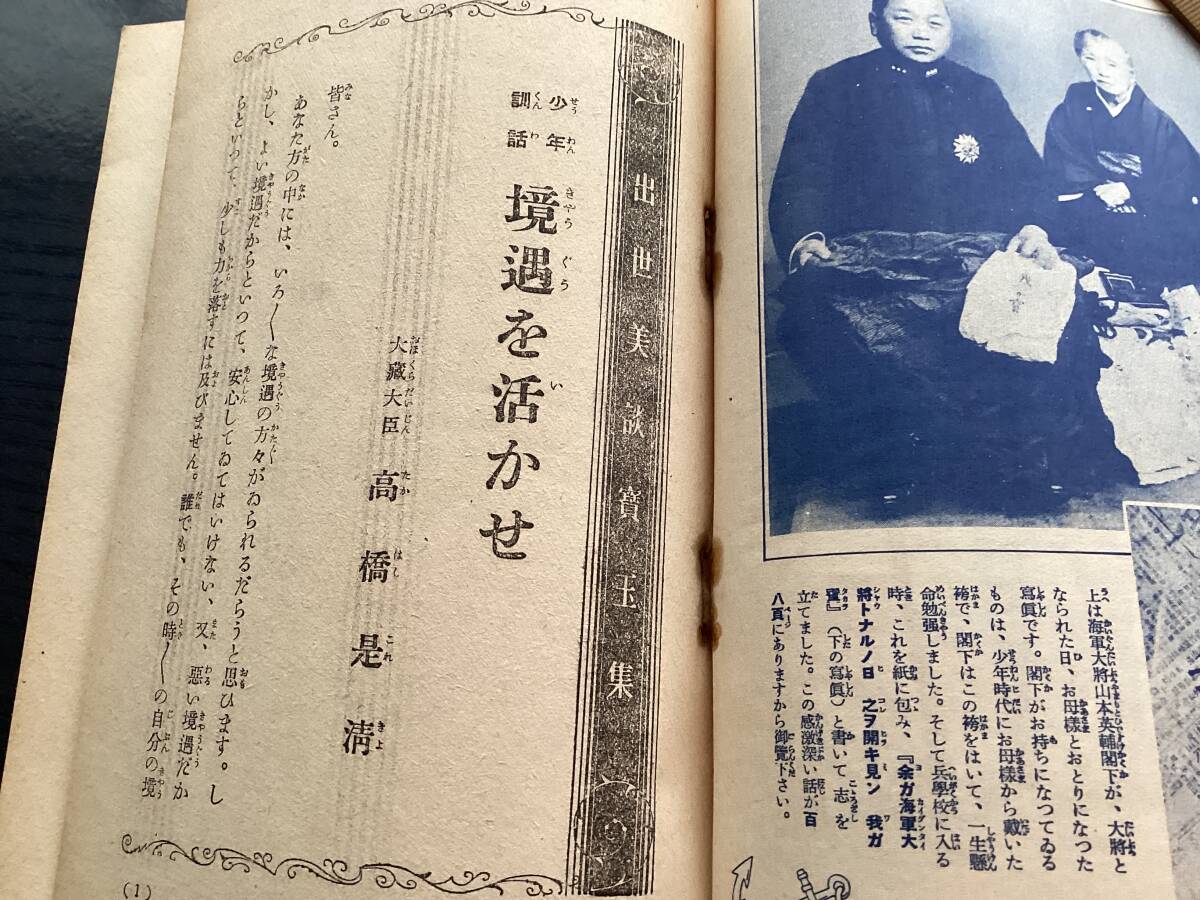 上は海軍大將山本英輔閣下が、大將と
なられた日、お母様とおとりになつた
寫眞です。閣下がお持ちになつてゐる
ものは、少年時代にお母様から戴いた
袴で、閣下はこの袴をはいて、一生懸
命勉强しました。そして兵學校に入る
時、これを紙に包み、『余ガ海軍大
將トナルノ日 之ヲ開キ見ン 我ガ
寶』(下の寫眞)と書いて志を
立てました。この感激深い話が百
八頁にありますから御覽下さい。
出世美談寶玉集
少年
訓話
境遇を活かせ
大藏大臣 高橋是淸
皆さん。
あなた方の中には、いろ〳〵な境遇の方々がゐられるだらうと思ひます。し
かし、よい境遇だからといって、安心してゐてはいけない、又、惡い境遇だか
らといって、少しも力を落すには及びません。誰でも、その時〳〵の自分の境
(1)